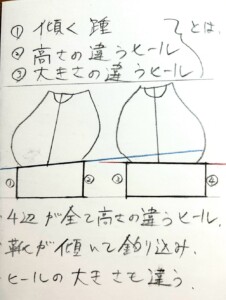 ① 傾く踵
とは、
② 高さの違うヒール
③ 大きさの違うヒール
① ② ③ ④
・4辺が全て高さの違うヒール.
・靴が傾いて釣り込み.
・ヒールの大きさも違う.